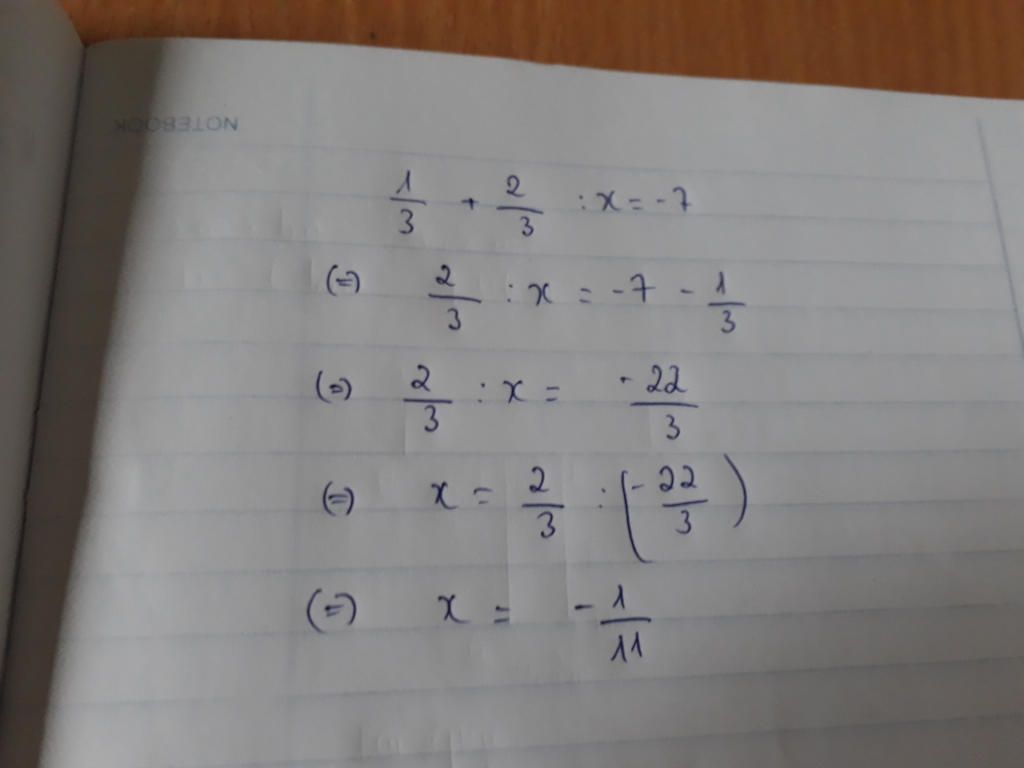 NOTEBOOK
1/3 + 2/3 : x = -7
(=) 2/3 : x = -7 - 1/3
(=) 2/3 : x = -22/3
(=) x = 2/3 : (-22/3)
(=) x = -1/11